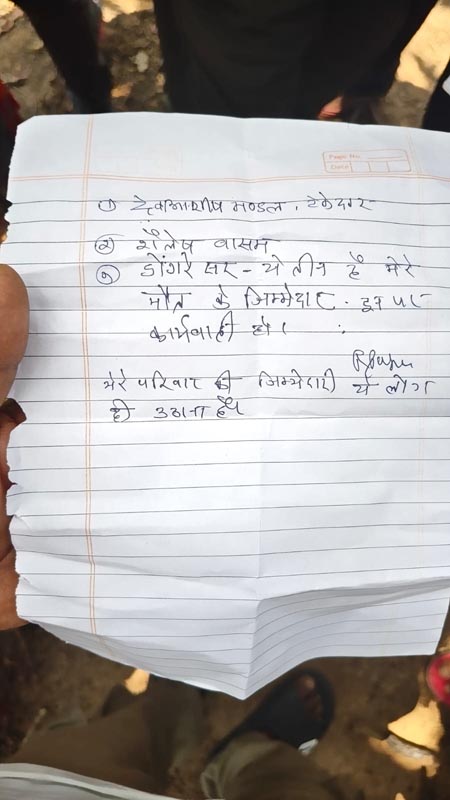 Page No.
Date
① देवआशीष मण्डल, ठेकेदार
② शैलेष वासम
③ डोंगरे सर - ये तीन है मेरे
मौत के जिम्मेदार. इन पर
कार्यवाही हो।
मेरे परिवार की जिम्मेदारी ये लोग
ही उठाना है